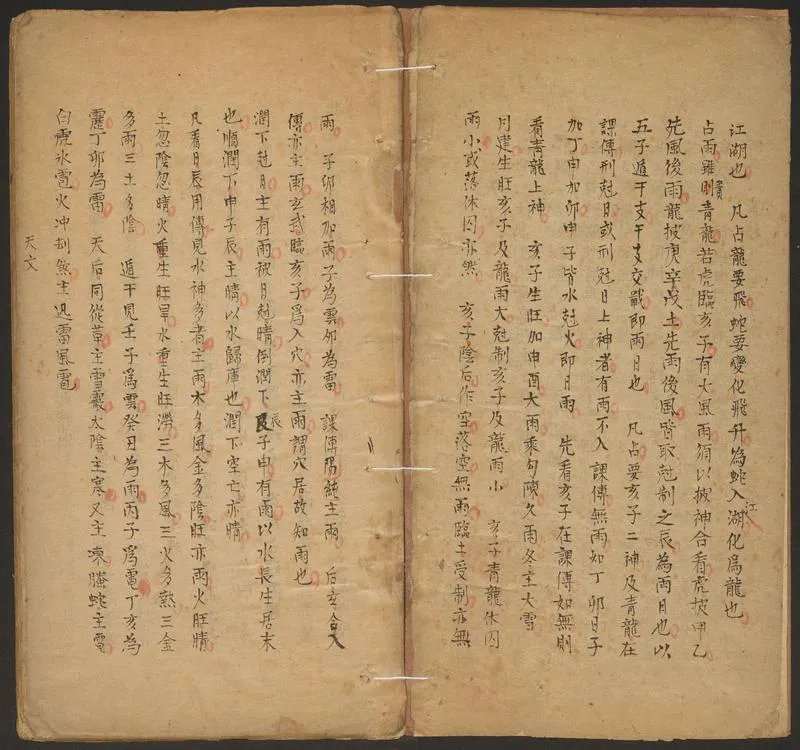 江湖也　凡占龍要飛蛇要變化飛升為蛇入江湖化為龍也
占雨雖則貴青龍若虎臨亥子有火風雨須以披神合看虎披甲乙
先風後雨龍披庚辛戊土先雨後風皆取尅制之辰為雨日也以
五子遁干支干支交戰即雨日也　凡占要亥子二神及青龍在
課傳刑尅日或刑尅日上神者有雨不入課傳無雨如丁卯日子
加丁申加卯申子皆水尅火即日雨　先看亥子在課傳如無則
看青龍上神　亥子生旺加申酉大雨乘勾陳久雨冬主大雪
月建生旺亥子及龍雨大尅制亥子及龍雨小　亥子青龍休囚
雨小或落休囚亦然　亥子陰后作空落空無雨臨土受制亦無
雨　子卯相加雨子為雲卯為雷　課傳陽純主雨　后玄合入
傳亦主雨玄武臨亥子為入穴亦主雨謂穴居故知雨也
潤下尅日主有雨被日尅晴倒潤下辰子申有雨以水長生居末
也順潤下申子辰主晴以水歸庫也潤下空亡亦晴
凡看日辰用傳見水神多者主雨木多風金多陰旺亦雨火旺晴
土忽陰忽晴火重生旺旱水重生旺澇三木多風三火多熱三金
多雨三土多陰　遁干見壬子為雲癸丑為雨丙子為電丁亥為
靂丁卯為雷　天后同從革主雪霰太陰主寒又主凍螣蛇主電
白虎氷雹火冲刦煞主迅雷風電
天文